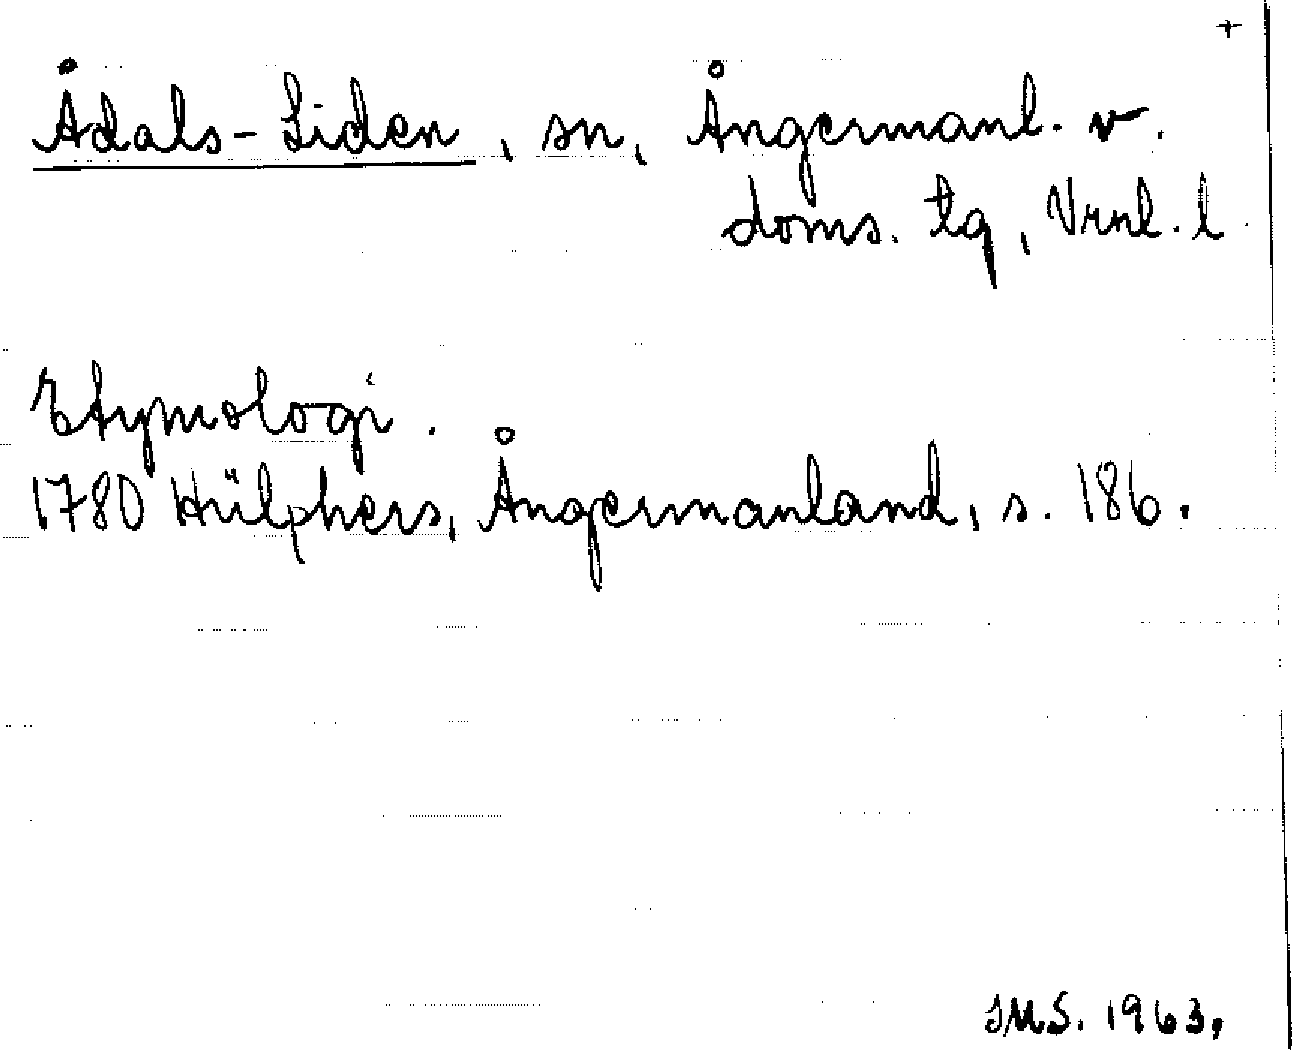 +
Ådals-Liden, sn, Ångermanl. v.
doms. tg, Vrnl. l.
Etymologi.
1780 Hülphers, Ångermanland, s. 186.
IMS. 1963.